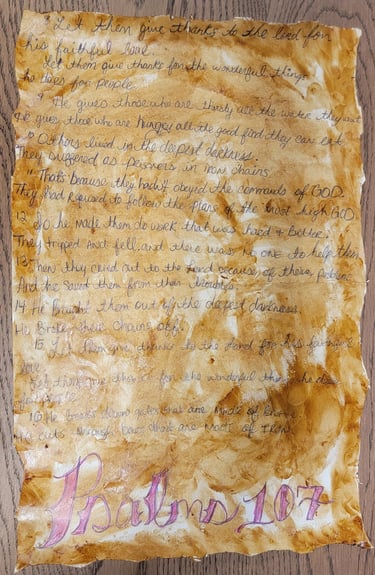 8 Let them give thanks to the lord for
his faithful love.
Let them give thanks for the wonderful things
he does for people.
9 He gives those who are thirsty all the water they want
He gives those who are Hungry all the good food they can eat
10 Others lived in the deepest darkness.
They suffered as prisners in iron chains.
11 That's because they hadn't obeyed the commands of GOD.
They had refused to follow the plans of the most high GOD.
12 So he made them do work that was hard & bitter.
They triped and fell, and there was no one to help them
13 Then they cried out to the Lord because of there problems
And He saved them from their troubles.
14 He Brought them out of the deepest darkness.
He Broke their chains off.
15 Let them give thanks to the Lord for his faithful
love.
Let them give thanks for the wonderful things he does
for People
16 He breaks down gates that are Made of Bronze
He cuts through bars that are Made of Iron.
Psalms 107